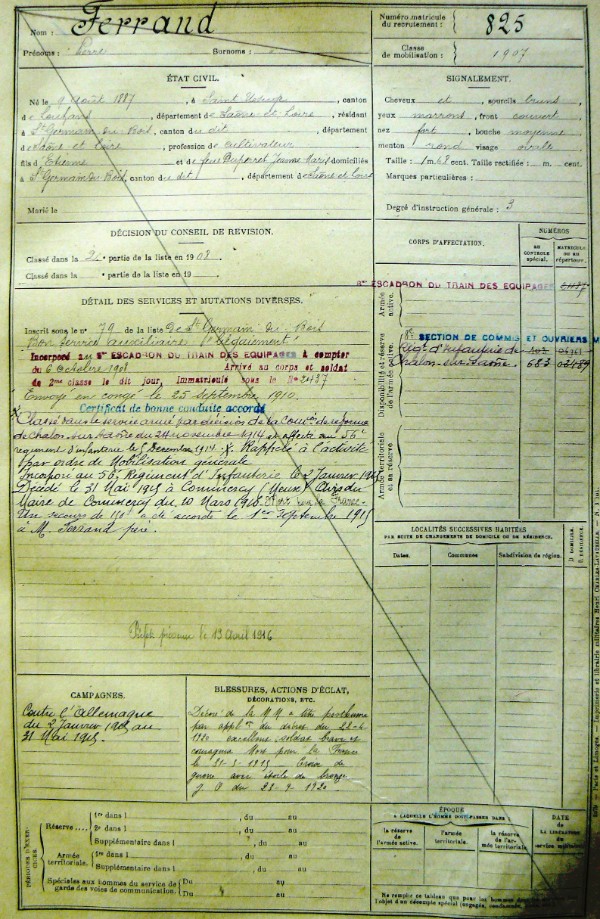 Nom : Ferrand
Prénoms : Pierre Surnoms :
Numéro matricule du recrutement : 825
Classe de mobilisation : 1907
ÉTAT CIVIL.
Né le 9 août 1887, à Saint, canton
d, département de Saône-et-Loire, résidant
à St Germain du Bois, canton du dit, département
de Saône et Loire, profession de cultivateur
fils d'Etienne et de feue Jeanne Mary, domiciliés
à St Germain du Bois, canton du dit, département de Saône et Loire
Marié le
SIGNALEMENT.
Cheveux et sourcils bruns
yeux marrons, front couvert
nez fort, bouche moyenne
menton rond visage ovale
Taille : 1 m. 68 cent. Taille rectifiée : m. cent.
Marques particulières :
Degré d'instruction générale : 3
DÉCISION DU CONSEIL DE RÉVISION.
Classé dans la 2e partie de la liste en 1908
Classé dans la e partie de la liste en 19
DÉTAIL DES SERVICES ET MUTATIONS DIVERSES.
Inscrit sous le no 79 de la liste de St Germain du Bois
Bon service auxiliaire
Incorporé au 8e ESCADRON DU TRAIN DES EQUIPAGES à compter
du 6 octobre 1908 Arrivé au corps et soldat
de 2me classe le dit jour, Immatriculé sous le No 2437
Envoyé en congé le 25 septembre 1910.
Certificat de bonne conduite accordé
Classé dans le service armé par décision de la Comm. de réforme
de Chalon sur Saône du 24 novembre 1914 et affecté au 56e
régiment d'infanterie le 5 décembre 1914. Rappelé à l'activité
par ordre de Mobilisation générale
Incorporé au 56e Régiment d'Infanterie le 2 Janvier 1915
Décédé le 31 Mai 1915 à Commercy (Meuse) Avis du
Maire de Commercy du 10 Mars 1918.
Un secours de 150f a été accordé le 1er Septembre 1915
à M. Ferrand père.
le 13 Avril 1916
CORPS D'AFFECTATION.
NUMÉROS
AU CONTROLE spécial.
MATRICULE OU AU répertoire.
Armée active.
8me ESCADRON DU TRAIN DES EQUIPAGES 2437
Disponibilité et réserve de l'armée active.
8e SECTION DE COMMIS ET OUVRIERS M
Régt d'Infanterie de
Chalon-sur-Saône. 683
Armée territoriale et sa réserve.
LOCALITÉS SUCCESSIVES HABITÉES
PAR SUITE DE CHANGEMENTS DE DOMICILE OU DE RÉSIDENCE.
Dates. Communes Subdivision de région. D. DOMICILE. R. RÉSIDENCE.
CAMPAGNES.
Contre l'Allemagne
du 2 Janvier 1915 au
31 Mai 1915.
BLESSURES, ACTIONS D'ÉCLAT,
DÉCORATIONS, ETC.
Décoré de la M M à titre posthume
par du
1920 excellent soldat brave et
courageux Mort pour la France
le 31-5-1915 Croix de
guerre avec étoile de bronze
J. O du 1920
PÉRIODES D'EXERCICES.
Réserve
1re dans l , du au
2e dans l , du au
Supplémentaire dans l , du au
Armée territoriale.
1re dans l , du au
Supplémentaire dans l , du au
Spéciales aux hommes du service de garde des voies de communication.
Du au
Du au
ÉPOQUE
A LAQUELLE L'HOMME DOIT PASSER DANS
la réserve de l'armée active.
l'armée territoriale.
la réserve de l'armée territoriale.
DATE
DE LA LIBÉRATION du service militaire.
Ne remplir ce tableau que pour les hommes